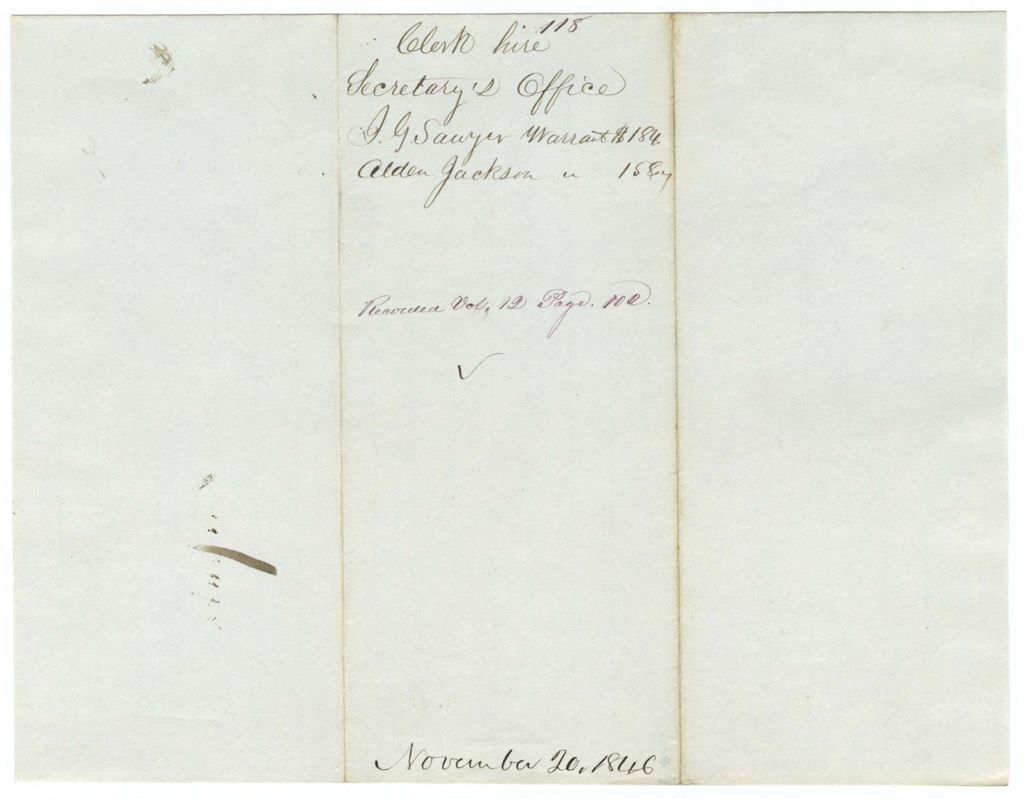 118
Clerk hire
Secretary's Office
J. G Sawyer Warrant $184
Alden Jackson " 158
Recorded Vol. 12 Page. 102.
November 20, 1846